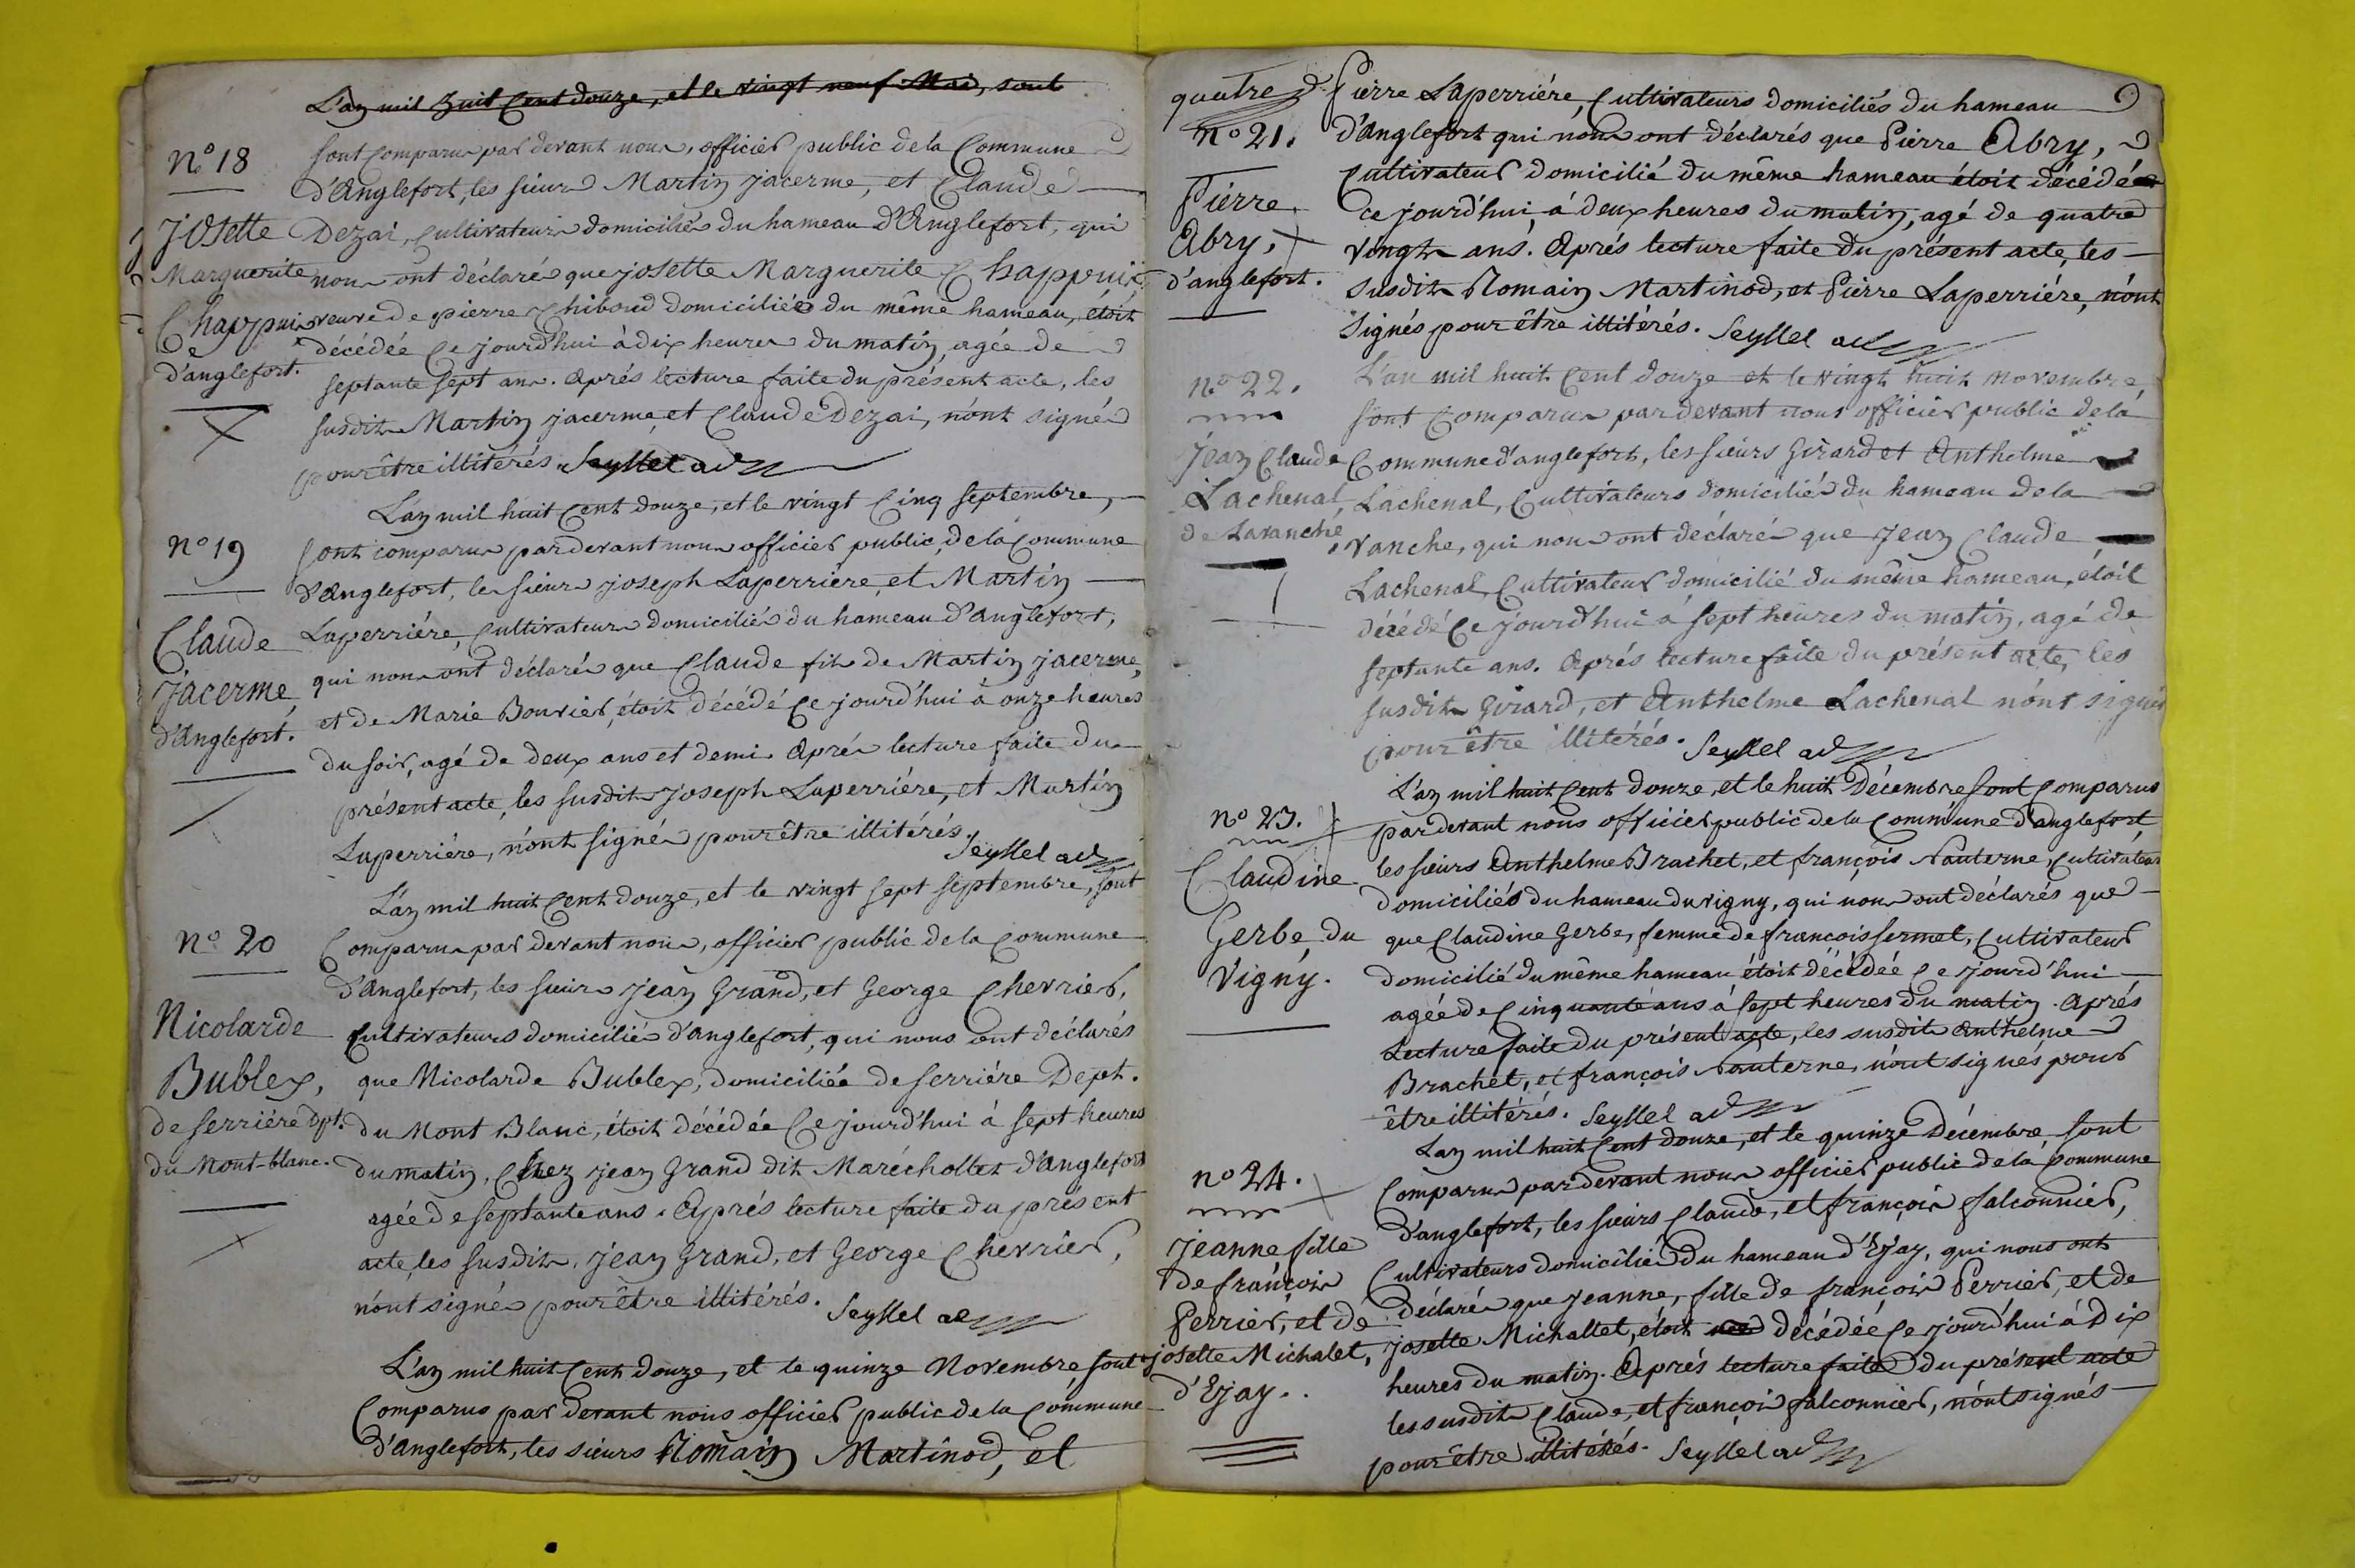 L'an mil huit Cent douze, et le vingt neuf Mai, sont
N° 18
sont comparus par devant nous, officier public de la Commune
d'Anglefort, les sieurs Martin jacerme, et Claude
Josette
Marguerite
Chappuis
de
d'anglefort.
Dezai, Cultivateurs domiciliés du hameau d'Anglefort, qui
nous ont déclarés que josette Marguerite Chappuis
veuve de pierre Chiboud domiciliée du même hameau, étoit
décédée Ce jourd'hui à dix heures du matin, agée de
septante sept ans. Aprés lecture faite du présent acte, les
susdits Martin jacerme, et Claude Dezai, n'ont signés
pour être illitérés. Seyssel adj
L'an mil huit Cent douze, et le vingt Cinq septembre,
N° 19
sont comparus par devant nous officier public, de la Commune
d'Anglefort, les sieurs joseph Laperriére, et Martin
Claude
Jacerme,
d'Anglefort.
Laperriére, Cultivateurs domiciliés du hameau d'anglefort,
qui nous ont déclarés que Claude fils de Martin jacerme,
et de Marie Bouvier, étoit décédé Ce jourd'hui à onze heures
du soir, agé de deux ans et demi. Aprés lecture faite du
présent acte, les susdits joseph Laperriére, et Martin
Laperriére, n'ont signés pour être illitérés.
Seyssel adj
L'an mil huit Cent douze, et le vingt sept septembre, sont
N° 20
Comparus par devant nous, officier public de la Commune
d'Anglefort, les sieurs jean Grand, et George Chevrier,
Nicolarde
Bublex,
de serriére dpt.
du Mont-blanc.
Cultivateurs domiciliés d'anglefort, qui nous ont déclarés
que Nicolarde Bublex, domiciliée de serriére Dept.
du Mont Blanc, étoit décédée Ce jourd'hui à sept heures
du matin, Chez jean Grand dit Marécholtet d'Anglefort
agée de septante ans. Aprés lecture faite du présent
acte, les susdits, jean Grand, et George Chevrier,
n'ont signés pour être illitérés.
Seyssel adj
L'an mil huit Cent douze, et le quinze Novembre, sont
Comparus par devant nous officier public de la Commune
d'Anglefort, les sieurs Romain Martinod, et
quatre
Pierre Laperriére, Cultivateurs domiciliés du hameau
N° 21.
d'Anglefort qui nous ont déclarés que Pierre Abry,
Cultivateur domicilié du même hameau étoit décédé
Pierre
Abry,
d'anglefort.
ce jourd'hui à deux heures du matin, agé de quatre
vingts ans. Aprés lecture faite du présent acte, les
susdits Romain Martinod, et Pierre Laperriére, n'ont
signés pour être illitérés. Seyssel adj
N° 22.
L'an mil huit Cent douze et le vingt huit novembre,
sont Comparus par devant nous officier public de la
Jean Claude
Lachenal,
de Lavanche
Commune d'anglefort, les sieurs Girard et Anthelme
Lachenal, Cultivateurs domiciliés du hameau de la
vanche, qui nous ont déclarés que Jean Claude
Lachenal, Cultivateur domicilié du même hameau, étoit
décédé Ce jourd'hui à sept heures du matin, agé de
septante ans. Aprés lecture faite du présent acte, les
susdits Girard, et Anthelme Lachenal n'ont signés
pour être illitérés. Seyssel adj
L'an mil huit Cent douze, et le huit Décembre sont Comparus
N° 23.
par devant nous officier public de la Commune d'anglefort,
les sieurs Anthelme Brachet, et françois Nauterne, Cultivateurs
Claudine
Gerbe, du
Vigny.
domiciliés du hameau du vigny, qui nous ont déclarés que
que Claudine Gerbe, femme de francois sermet, Cultivateur
domicilié du même hameau étoit décédée Ce jourd'hui
agée de Cinquante ans à sept heures du matin. Aprés
Lecture faite du présent acte, les susdits Anthelme
Brachet, et françois Nauterne, n'ont signés pour
être illitérés. Seyssel adj
L'an mil huit Cent douze, et le quinze Décembre, sont
N° 24.
Comparus par devant nous officier public de la Commune
d'anglefort, les sieurs Claude, et françois falconnier,
Jeanne fille
de françois
Perrier, et de
josette Michalet,
d'Ejay.
Cultivateurs domiciliés du hameau d'Ejay, qui nous ont
déclarés que jeanne, fille de françois Perrier, et de
josette Michallet, étoit décédée Ce jourd'hui à Dix
heures du matin. Aprés lecture faite du présent acte
les susdits Claude, et françois falconnier, n'ont signés
pour être illitérés. Seyssel adj